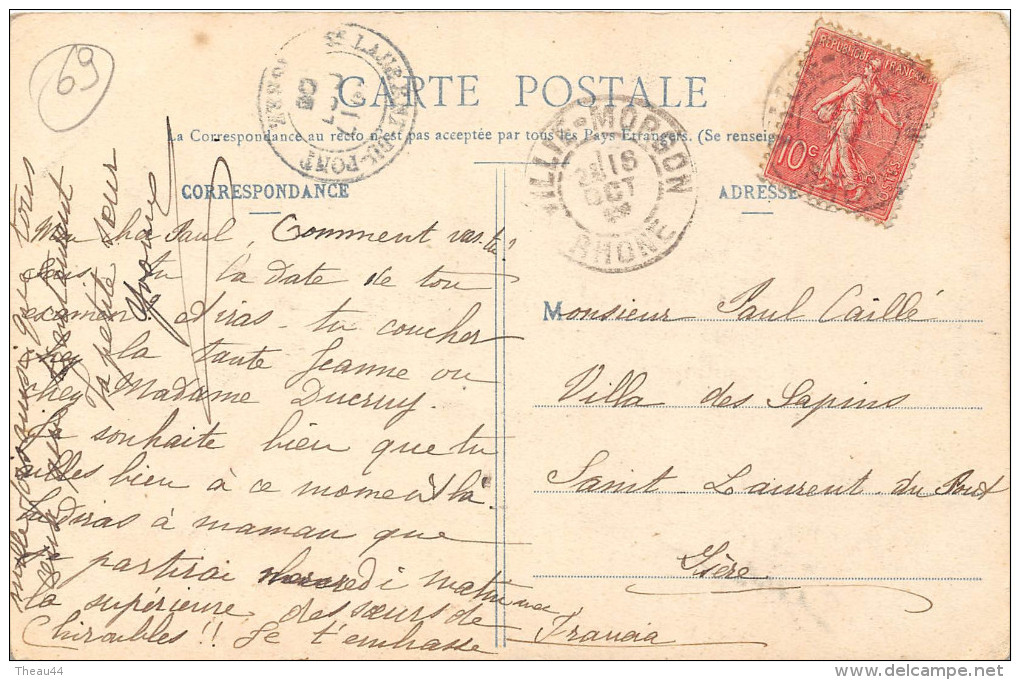 69
CARTE POSTALE
La Correspondance au recto n'est pas acceptée par tous les Pays Etrangers. (Se renseign
CORRESPONDANCE
ADRESSE
REPUBLIQUE FRANÇAISE
10c
POSTES
ST LAURENT-DU-PONT
VILLIÉ-MORGON
18
OCT
RHONE
Mon cher Paul, Comment vas-tu?
Sais-tu la date de ton
examen. Iras-tu coucher
chez la tante Jeanne ou
chez Madame Ducruy.
Je souhaite bien que tu
ailles bien à ce moment là.
Tu diras à maman que
je partirai mercredi matin
la supérieure des sœurs de
Chiroubles!! Je t'embrasse
mille fois ainsi que tous
ta petite sœur
Yvonne
Monsieur Paul Caillé
Villa des Sapins
Saint Laurent du Pont
Isère
Theau44
www.delcampe.net